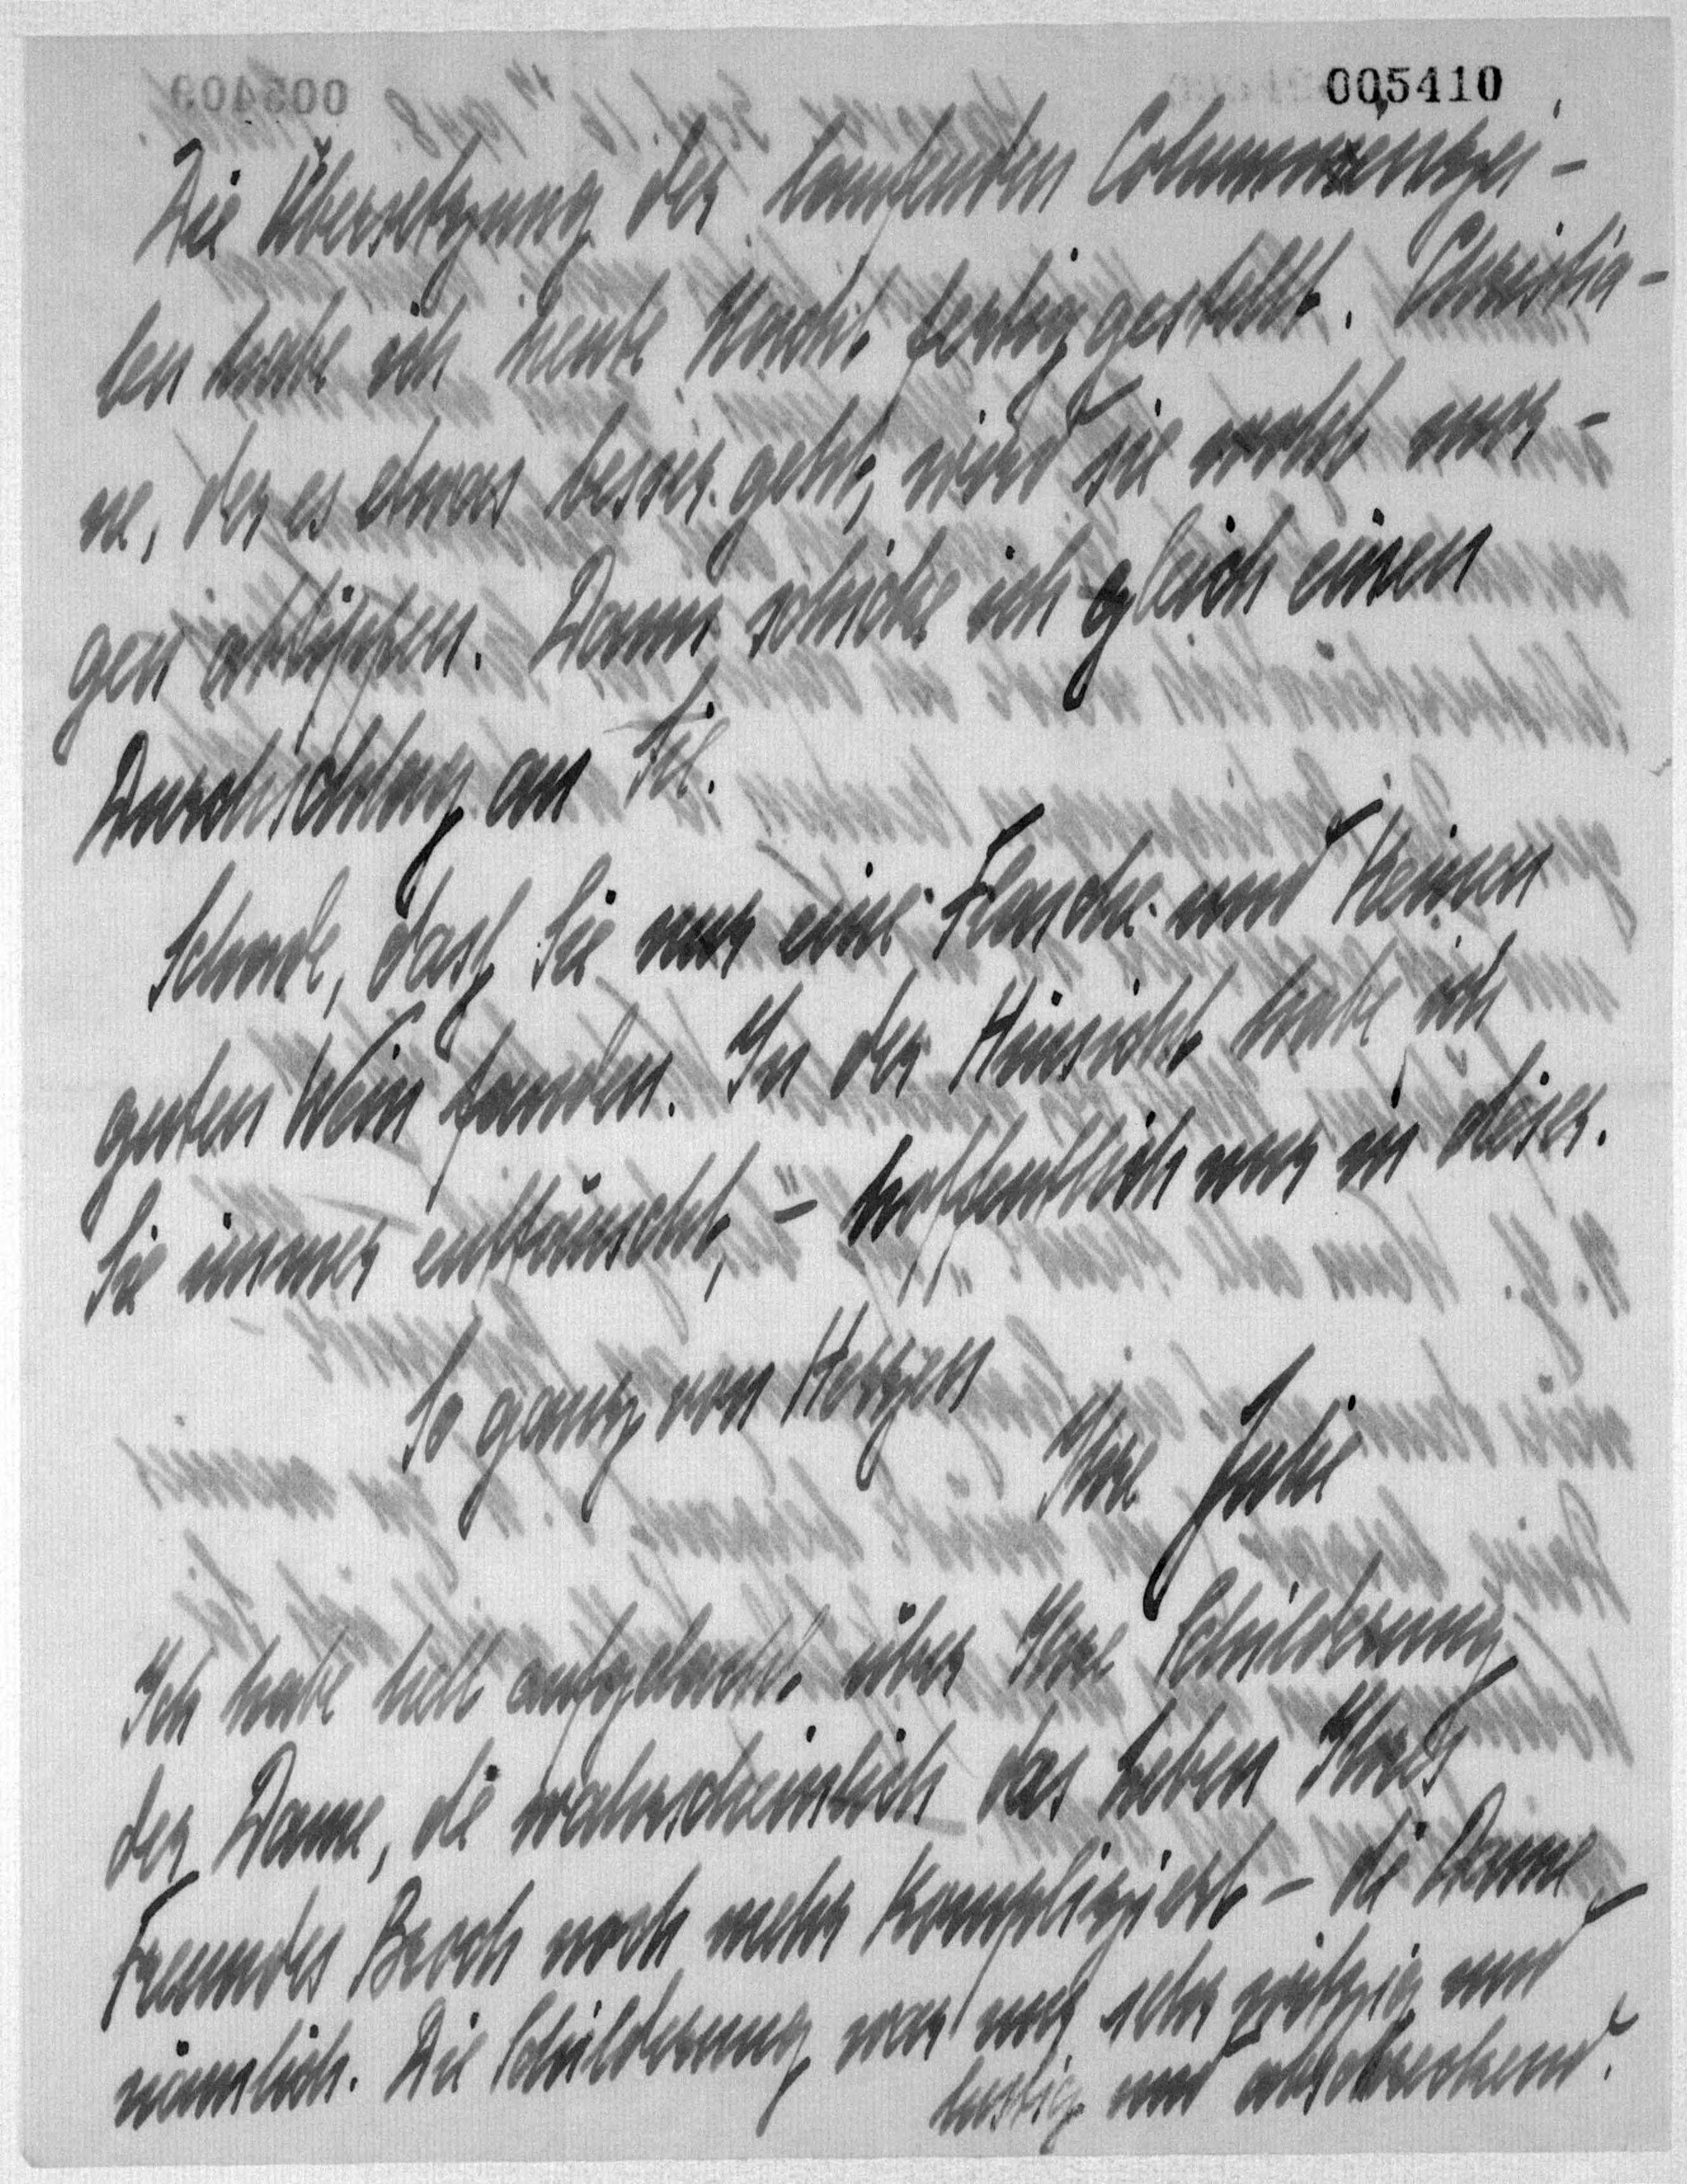 005410
Die Übersetzung der laufenden Columnenzei-
len habe ich heute Nacht fertig gestellt. Christia-
ne, der es etwas besser geht, wird sie wohl mor-
gen abtippen. Dann schicke ich gleich einen
Durchschlag an Sie.
Schade, dasz Sie nur eine Flasche und keinen
guten Wein fanden. In der Hinsicht habe ich
Sie immer enttäuscht, – hoffentlich nur in dieser.
So ganz von Herzen
Ihre Julie
Ich habe hell aufgelacht über Ihre Schilderung
der Dame, die wahrscheinlich das Leben Ihres
Freundes Broch noch mehr kompliziert – die Dame
nämlich. Die Schilderung war nur sehr witzig und
lustig und abschreckend.